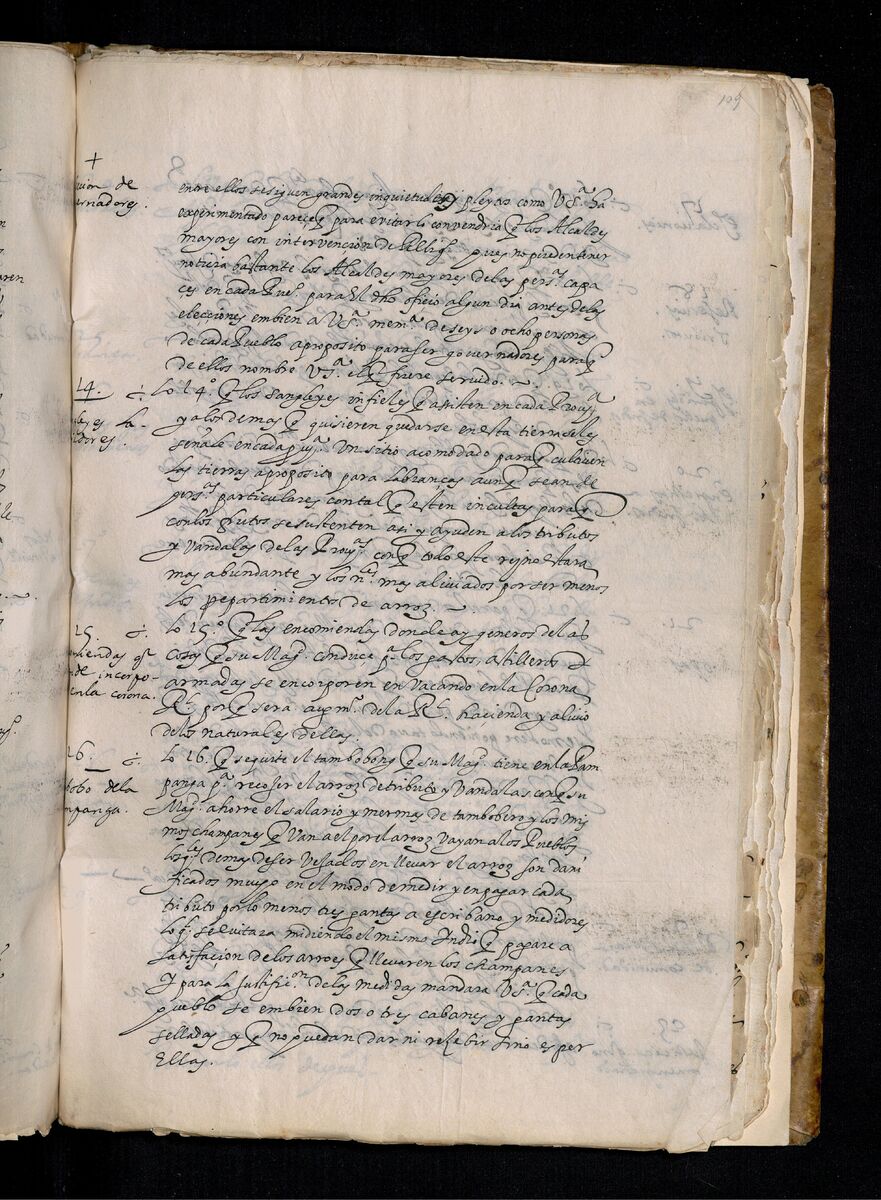 109
+
cion de
ernadores.
entre ellos se siguen grandes inquietudes y pleytos como V.Sª. ha
experimentado pareçe q̃ para evitarlo convendria q̃ los Alcaldes
mayores con intervencion de pues no pueden tener
noticia bastante los Alcaldes mayores de las pers.ˢ capa
ces en cada Pueº. para el dho officio algun dia antes de las
elecciones embien a V.Sª. memª. de seys o ocho personas
de cada Pueblo aproposito para ser governadores para q̃
de ellos nombre V.Sª. el q̃ fuere servido.
14.
leyes la
dores.
Lo 14º. q̃ los sangleyes infieles q̃ asisten en cada Provª
y a los demas q̃ quisieren quedarse en esta tierra se les
señale en cada Provª. Un sitio acomodado para q̃ cultiven
las tierras aproposito para labranças aunq̃ sean de
persˢ. particulares con tal q̃ esten incultas para q̃
con los frutos se sustenten assi y ayuden a los tributos
y vandalas de las Provˢ. con q̃ todo este reyno estara
mas abundante y los nˢ. mas aliviados por ser menos
los repartimientos de arroz.
15.
miendas q̃
de incorpo
en la corona.
Lo 15º. q̃ las encomiendas donde ay generos de las
cosas q̃ su Magᵈ. conduce pª. los gastos, astilleros y
armadas se encorporen en vacando en la Corona
Rˡ. por q̃ sera augmᵗᵒ. de la Rˡ. hacienda y alivio
de los naturales dellas.
16.
bobo de la
mpanga.
Lo 16. q̃ se quite el tambobong q̃ su Magᵈ. tiene en la Pam
panga pª. recoser el arroz de tributo y vandalas con q̃ su
Magᵈ. ahorre el salario y mermas de tambobero y los mis
mos champanes q̃ van a el por el arroz vayan a los Pueblos
los q̃ˢ. demas de ser vejados en llevar el arroz son dani
ficados mucho en el modo de medir y en pagar cada
tributo por lo menos tres gantas a escribano y medidores
lo q̃. se evitara midiendo el mismo Indio q̃ pagare a
satisfacion de los arraes q̃ llevaren los champanes
Y para la justificᵒⁿ. de las medidas mandara V.Sª. q̃ a cada
pueblo se embien dos o tres cabanes y gantas
selladas y q̃ no puedan dar ni recebir sino es por
ellas.